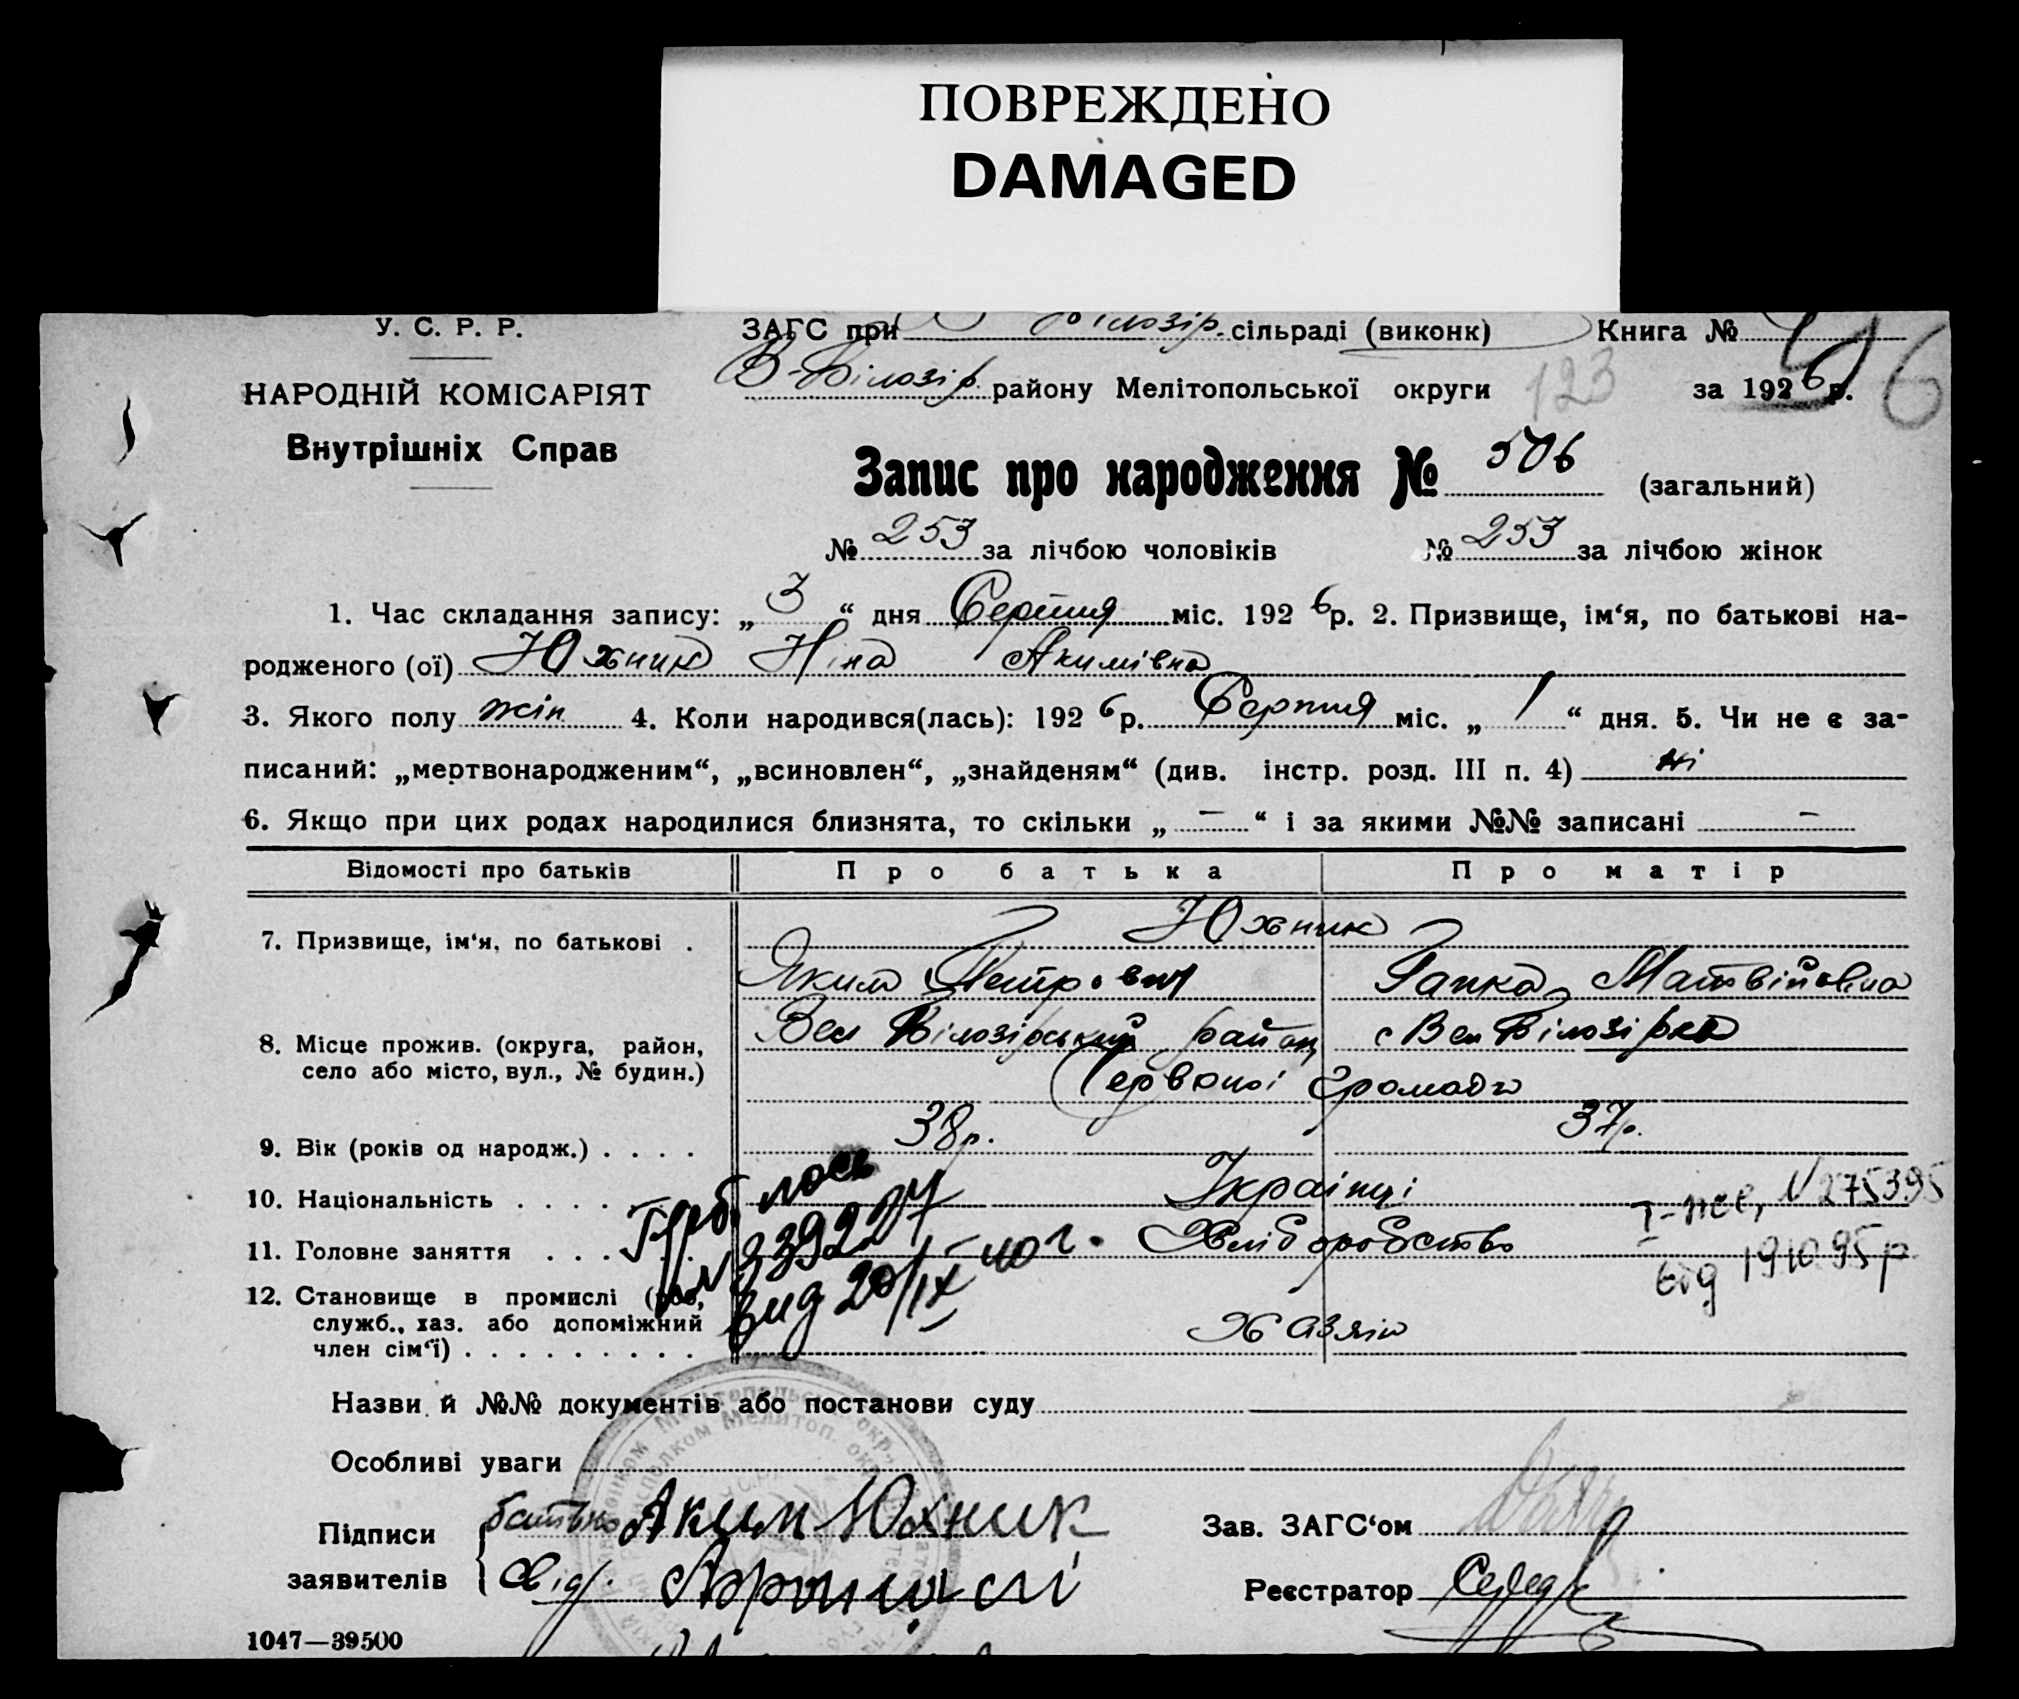 ПОВРЕЖДЕНО
DAMAGED
У. С. Р. Р.
ЗАГС при Білозір. сільраді (виконк) Книга №
НАРОДНІЙ КОМІСАРІЯТ
В-Білозір. району Мелітопольської округи 123 за 1926 р. 6
Внутрішніх Справ
Запис про народження № 506 (загальний)
№ 253 за лічбою чоловіків № 253 за лічбою жінок
1. Час складання запису: „3“ дня Серпня міс. 1926 р. 2. Призвище, ім‘я, по батькові на-
родженого (ої) Юхник Ніна Акимівна
3. Якого полу жін 4. Коли народився(лась): 1926 р. Серпня міс. „1“ дня. 5. Чи не є за-
писаний: „мертвонародженим“, „всиновлен“, „знайденям“ (див. інстр. розд. III п. 4) ні
6. Якщо при цих родах народилися близнята, то скільки „ — “ і за якими №№ записані —
Відомості про батьків Про батька Про матір
7. Призвище, ім‘я, по батькові . Юхник
Яким Петрович Гапка Матвіївна
8. Місце прожив. (округа, район, село або місто, вул., № будин.) Вел Білозірський район с Вел Білозірка
Червоної Громади
9. Вік (років од народж.) . . . . 38 р. 37 р.
10. Національність . . . . Українці
I-ЖС, N 275395
11. Головне заняття . . . Хліборобство
від 19 10 95 р
N 339227
вид 20/IX 40 г.
12. Становище в промислі (роб, служб., хаз. або допоміжний член сім‘ї) . . . . . . . . . Хазяін
Назви й №№ документів або постанови суду
Особливі уваги
Підписи заявителів
батько Аким Юхник
Зав. ЗАГС‘ом
Реєстратор
1047—39500